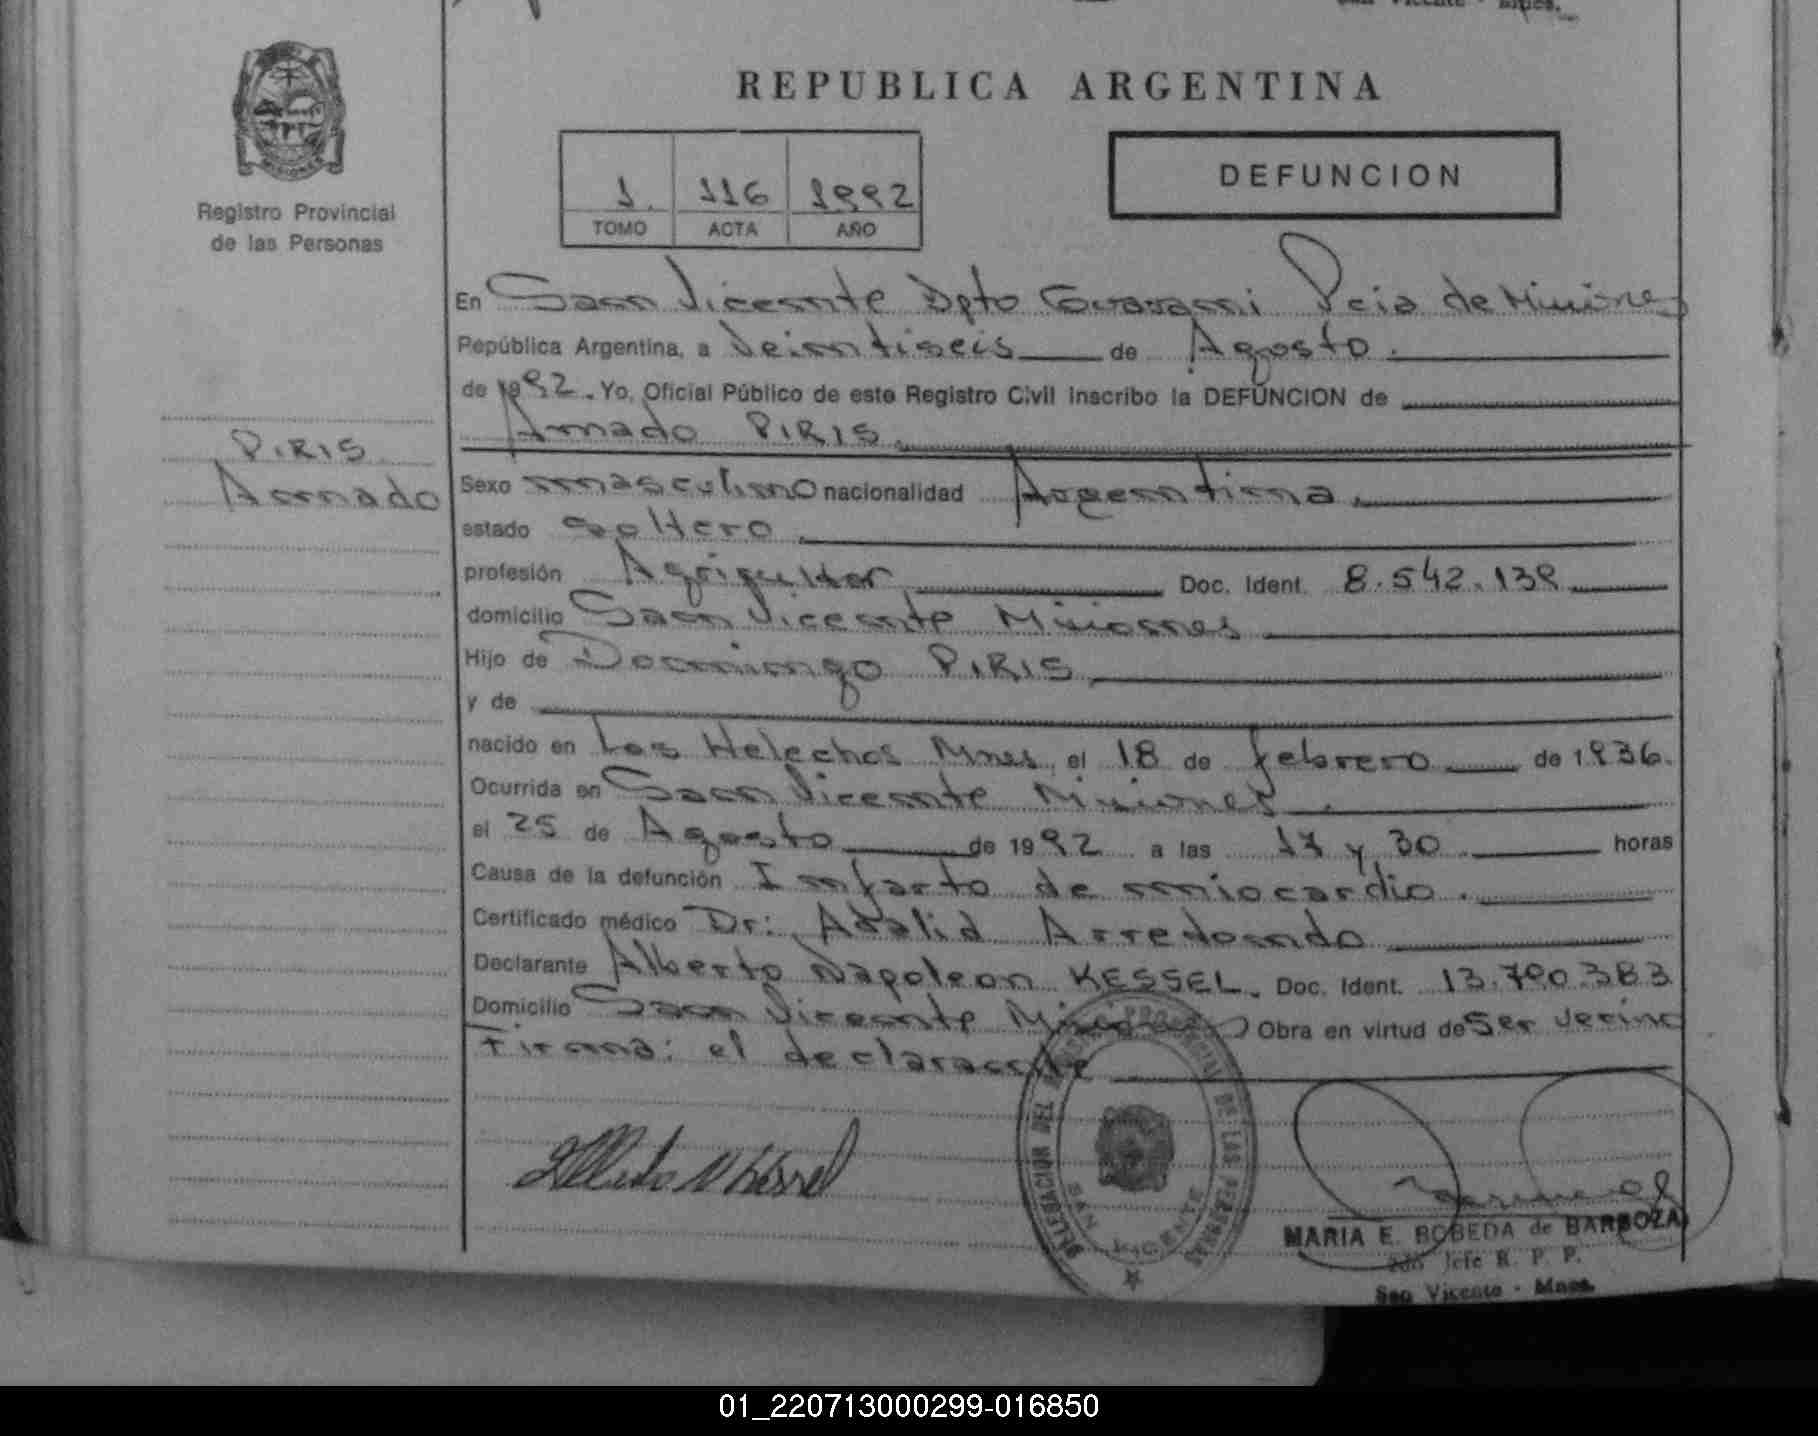 REPUBLICA ARGENTINA
Registro Provincial
de las Personas
1. 116 1992
TOMO ACTA AÑO
DEFUNCION
En San Vicente Dpto Guarani Pcia de Misiones
República Argentina, a Veintiseis de Agosto.
de 1992. Yo, Oficial Público de este Registro Civil inscribo la DEFUNCION de
Amado PIRIS.
PIRIS
Amado
Sexo masculino nacionalidad Argentina.
estado soltero
profesión Agricultor Doc. Ident. 8.542.139
domicilio San Vicente Misiones
Hijo de Domingo PIRIS
y de
nacido en Los Helechos Mnes, el 18 de febrero de 1936.
Ocurrida en San Vicente Misiones.
el 25 de Agosto de 1992 a las 17 y 30 horas
Causa de la defunción Infarto de miocardio.
Certificado médico Dr: Adalid Arredondo
Declarante Alberto Napoleon KESSEL. Doc. Ident. 13.790.383
Domicilio San Vicente Misiones Obra en virtud de Ser vecino
Firma: el declarante
DELEGACION DEL REGISTRO PROVINCIAL DE LAS PERSONAS
SAN VICENTE
MARIA E. BOBEDA de BARBOZA
2do Jefe R. P. P.
San Vicente - Mnes.
01_220713000299-016850